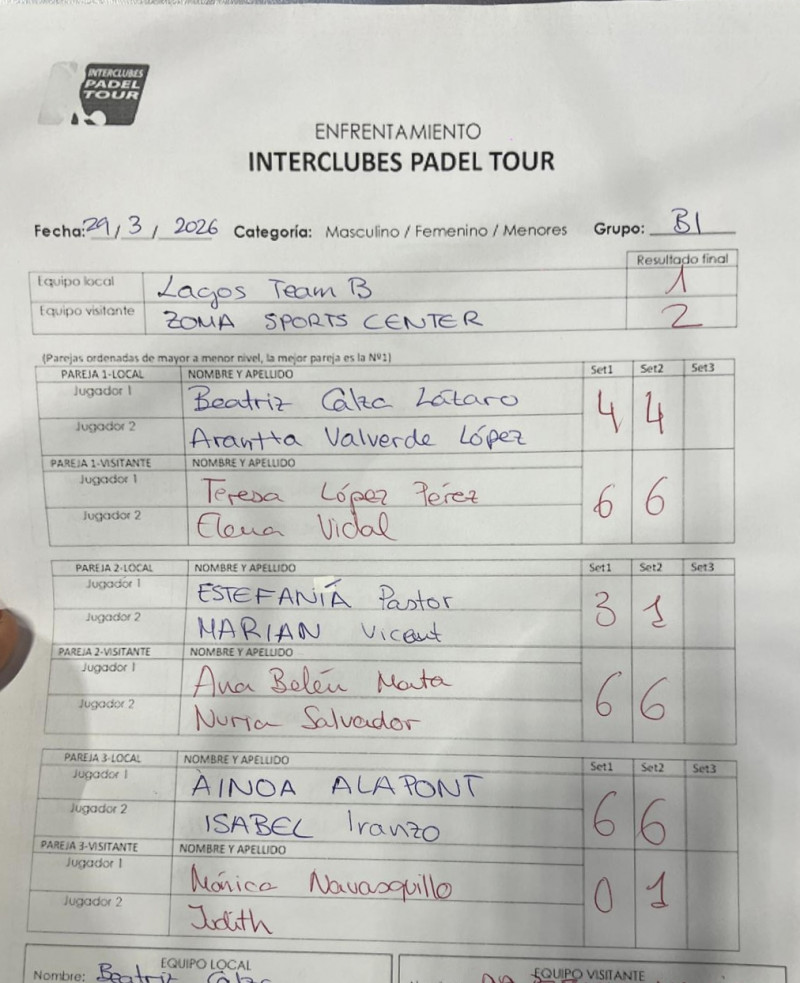 INTERCLUBES
PADEL
TOUR
ENFRENTAMIENTO
INTERCLUBES PADEL TOUR
Fecha: 29 / 3 / 2026 Categoría: Masculino / Femenino / Menores Grupo: B1
Resultado final
Equipo local Lagos Team B 1
Equipo visitante ZONA SPORTS CENTER 2
(Parejas ordenadas de mayor a menor nivel, la mejor pareja es la Nº1)
PAREJA 1-LOCAL NOMBRE Y APELLIDO Set1 Set2 Set3
Jugador 1 Beatriz Calza Látaro 4 4
Jugador 2 Arantta Valverde López
PAREJA 1-VISITANTE NOMBRE Y APELLIDO
Jugador 1 Teresa López Pérez 6 6
Jugador 2 Elena Vidal
PAREJA 2-LOCAL NOMBRE Y APELLIDO Set1 Set2 Set3
Jugador 1 ESTEFANÍA Pastor 3 1
Jugador 2 MARIAN Vicent
PAREJA 2-VISITANTE NOMBRE Y APELLIDO
Jugador 1 Ana Belén Mata 6 6
Jugador 2 Nuria Salvador
PAREJA 3-LOCAL NOMBRE Y APELLIDO Set1 Set2 Set3
Jugador 1 AINOA ALAPONT 6 6
Jugador 2 ISABEL Iranzo
PAREJA 3-VISITANTE NOMBRE Y APELLIDO
Jugador 1 Mónica Navasquillo 0 1
Jugador 2 Judith
EQUIPO LOCAL EQUIPO VISITANTE
Nombre: Beatriz Calza